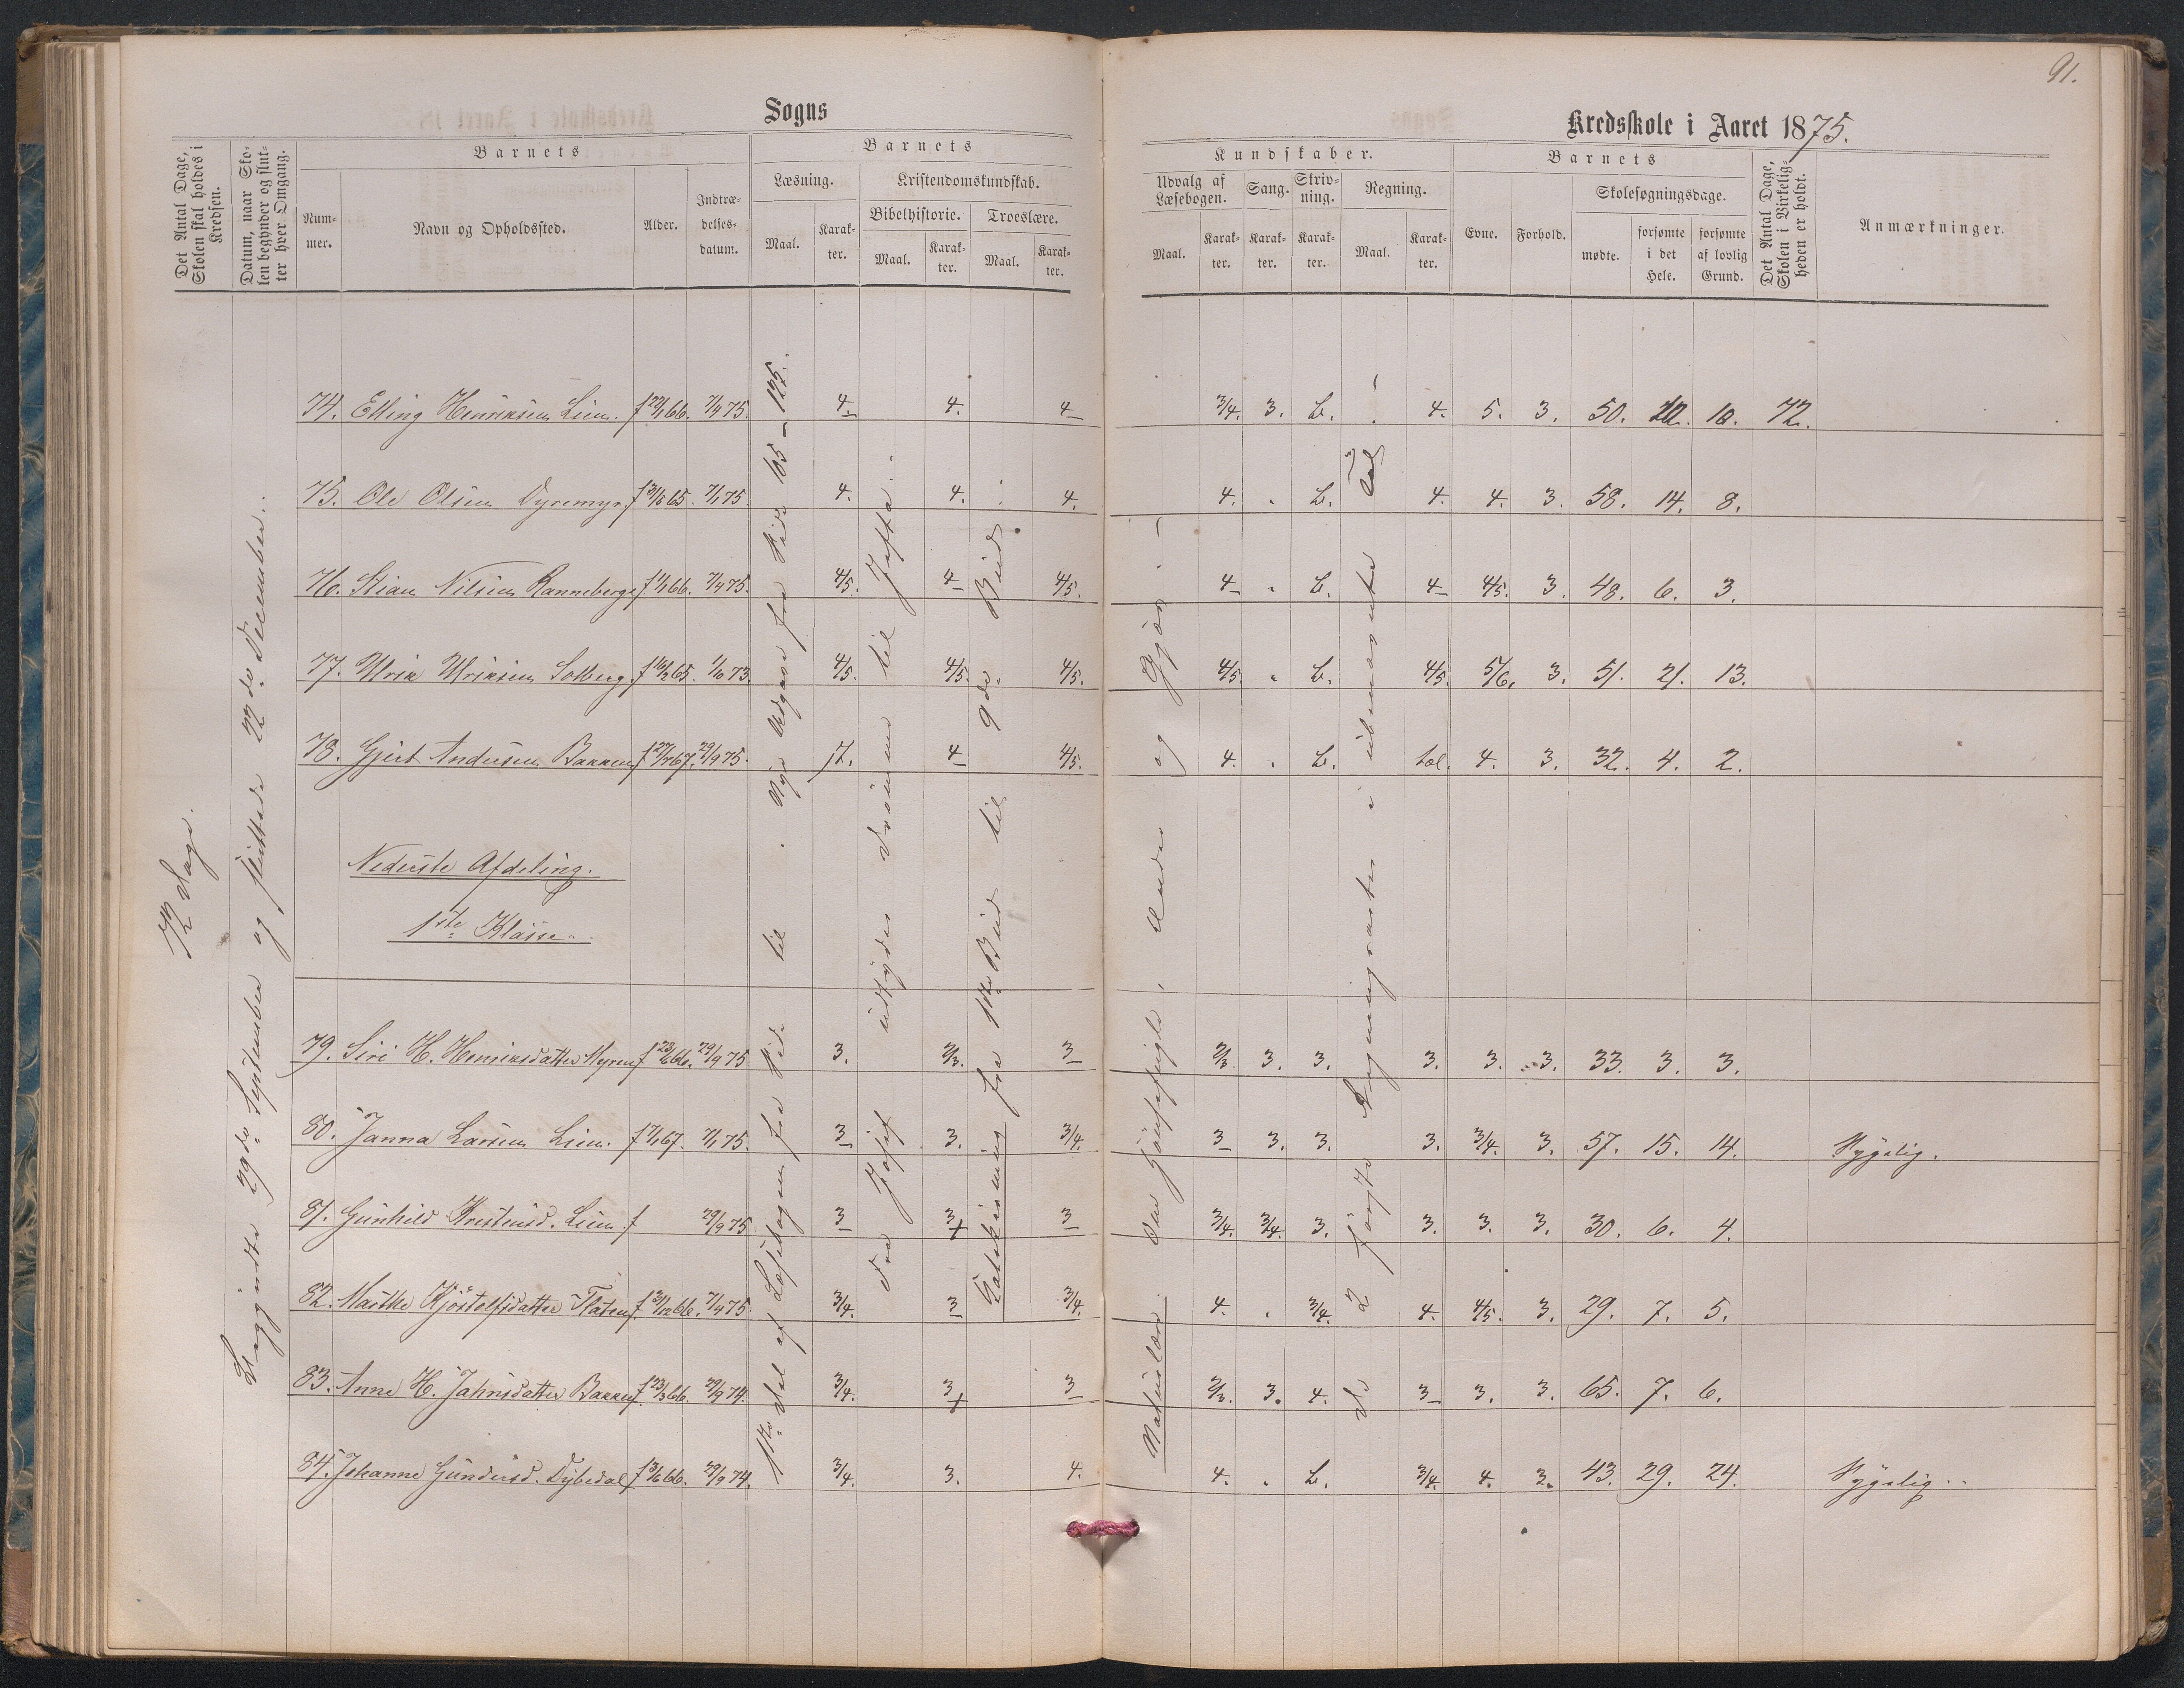 91.
Sogns
Kredsskole i Aaret 1875.
Det Antal Dage, Skolen skal holdes i Kredsen.
Datum, naar Skolen begynder og slutter hver Omgang.
Barnets
Nummer.
Navn og Opholdssted.
Alder.
Indtrædelsesdatum.
Barnets
Læsning.
Maal.
Karakter.
Kristendomskundskab.
Bibelhistorie.
Maal.
Karakter.
Troeslære.
Maal.
Karakter.
Kundskaber.
Udvalg af Læsebogen.
Maal.
Karakter.
Sang.
Karakter.
Skrivning.
Karakter.
Regning.
Maal.
Karakter.
Barnets
Evne.
Forhold.
Skolesøgningsdage.
mødte.
forsømte i det Hele.
forsømte af lovlig Grund.
Det Antal Dage, Skolen i Virkeligheden er holdt.
Anmærkninger.
72 Dage.
Begyndte 29de September og sluttede 22de December.
1ste Del af Læsebogen fra Side til . Nye Udgave fra Side 105 - 125.
Fra Josef udtyder Drømme til Jefta.
Katekismus fra 1ste Bud til 9de Bud
Naturlære. Om og Gjøn.
De 2 første Regningsarter i ubenævnte Tal
74. Elling Henriksen Lien. f 22/1 66. 7/4 75. 4 4. 4 3/4. 3. b. 4. 5. 3. 50. 22. 10. 72.
75. Ole Olsen Dyremyr f 31/8 65. 7/1 75. 4. 4. 4. 4. . b. 4. 4. 3. 58. 14. 8.
76. Stian Nilsen Ranneberg f 1/1 66. 7/4 75. 4/5. 4 4/5. 4 . b. 4 4/5. 3. 48. 6. 3.
77. Ulrik Ulriksen Solberg f 16/2 65. 1/10 73. 4/5. 4/5. 4/5. 4/5. . b. 4/5. 5/6. 3. 51. 21. 13.
78. Gjert Andersen Bakken f 27/7 67. 29/9 75. 4 4/5. 4. . b. tol. 4. 3. 32. 4. 2.
Nederste Afdeling.
1ste Klasse.
79. Siri H. Henriksdatter Myren f 23/6 66. 29/9 75 3. 2/3. 3 2/3. 3. 3. 3. 3. 3. 33. 3. 3.
80. Janna Larsen Lien. f 7/1 67. 7/1 75. 3 3. 3/4. 3 3. 3. 3. 3/4. 3. 57. 15. 14. Sygelig.
81. Gunhild Kristensd. Lien. f 29/9 75 3 3+ 3 3/4. 3/4. 3. 3. 3. 3. 30. 6. 4.
82. Marthe Kjøstolfsdatter Flaten f 31/12 66. 7/4 75. 3/4. 3 3/4. 4. . 3/4. 4. 4/5. 3. 29. 7. 5.
83. Anne H. Jahnsdatter Bakken f 23/3 66. 29/9 74. 3/4. 3+ 3 2/3. 3. 4. 3 3. 3. 65. 7. 6.
84. Johanne Gundersd. Dybedal f 3/6 66. 29/9 74. 3/4. 3. 4. 4. . b. 3/4. 4. 3. 43. 29. 24. Sygelig.